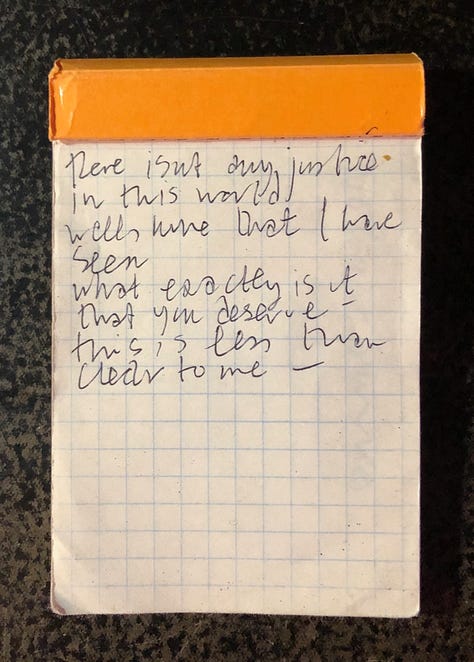 there isnt any justice
in this world
well, none that I have
seen
what exactly is it
that you deserve –
this is less than
clear to me –